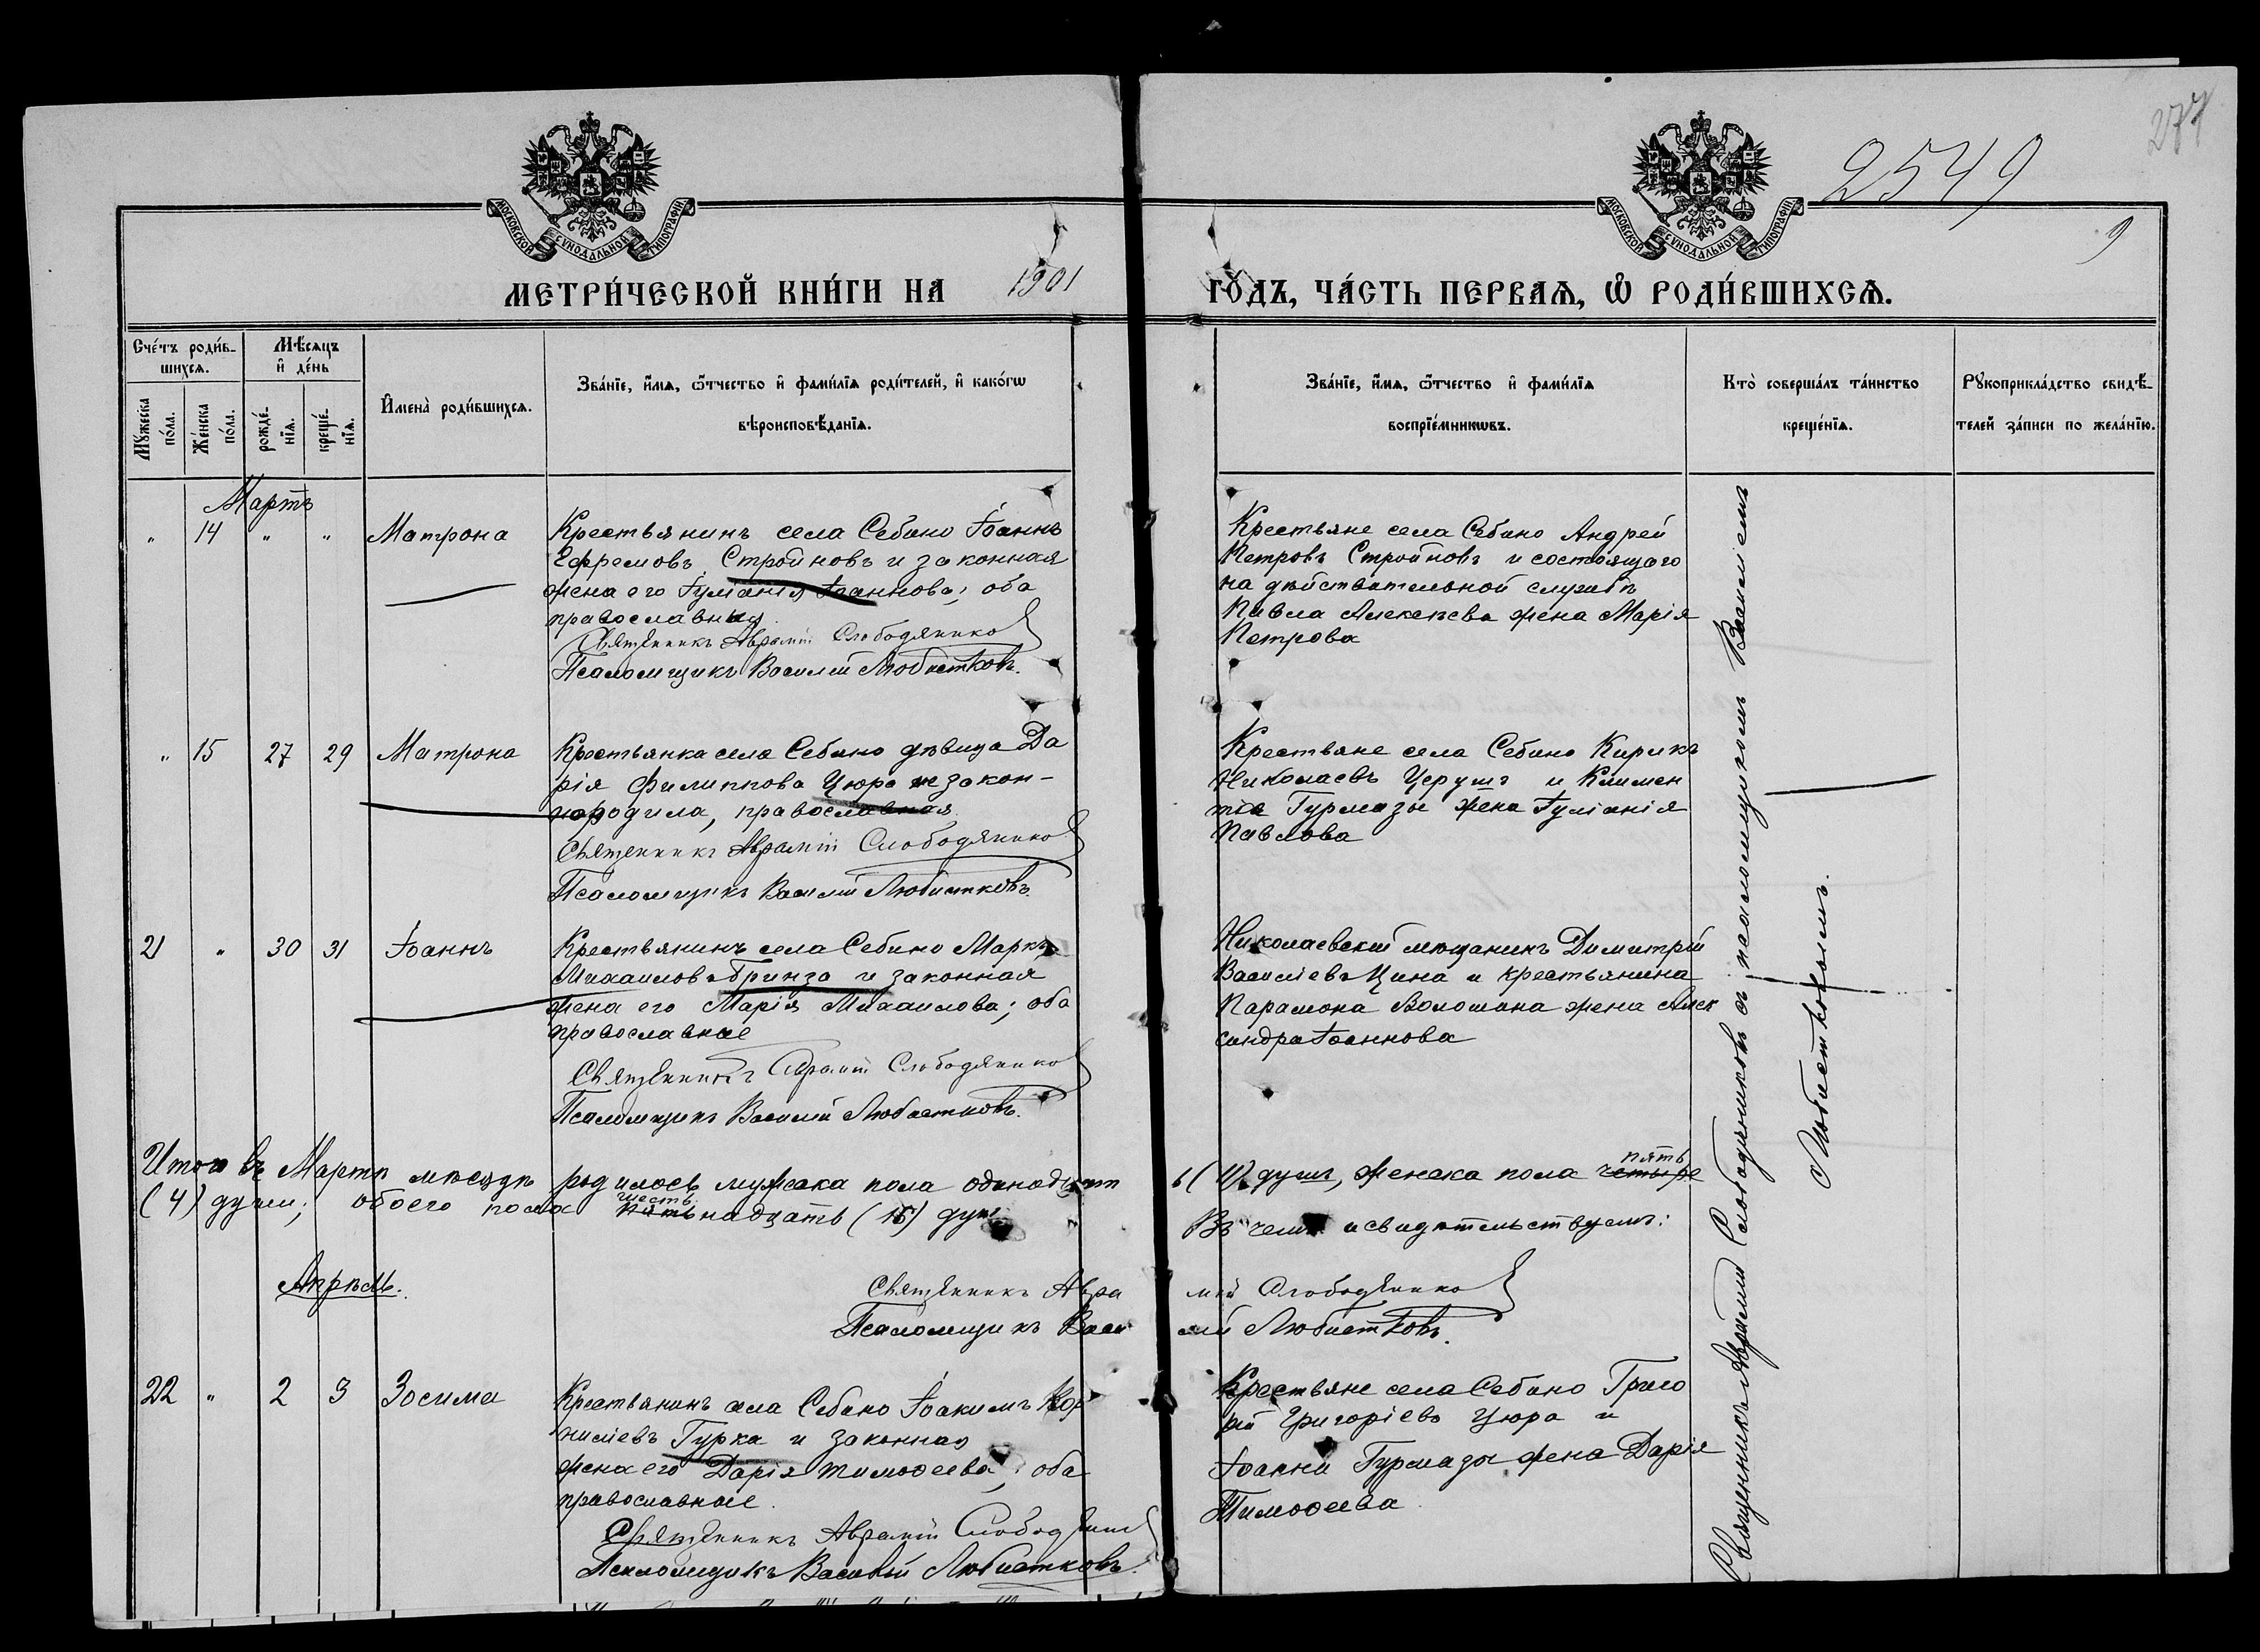 277
2549
9
МОСКОВСКОЙ СѴНОДАЛЬНОЙ ТИПОГРАФІИ
МОСКОВСКОЙ СѴНОДАЛЬНОЙ ТИПОГРАФІИ
МЕТРИ́ЧЕСКОЙ КНИ́ГИ НА 1901 ГО́ДЪ, ЧА́СТЬ ПЕРВАѦ, Ѡ҆ РОДИ́ВШИХСѦ.
Сче́тъ роди́в-
шихсѧ.
Мꙋ́жеска по́ла.
Же́нска по́ла.
Мѣ́сѧцъ
и҆ де́нь
рожде́-
нїѧ.
креще́-
нїѧ.
И҆мена̀ роди́вшихсѧ.
Зва́нїе, и҆́мѧ, ѻ҆́тчество и҆ фами́лїѧ роди́телей, и҆ како́гѡ
вѣроисповѣ́данїѧ.
Зва́нїе, и҆́мѧ, ѻ҆́тчество и҆ фами́лїѧ
воспрїе́мникѡвъ.
Кто̀ соверша́лъ та́инство
креще́нїѧ.
Рꙋкоприкла́дство свидѣ́-
телей за́писи по жела́нїю.
Мартъ
" 14 " " Матрона
Крестьянинъ села Себино Іоаннъ
Ефремовъ Стройновъ и законная
жена его Іуліанія Іоаннова; оба
православные
Священникъ Аврамій Слободянико
Псаломщикъ Василій Любистковъ.
Крестьяне села Себино Андрей
Петровъ Стройновъ и состоящаго
на дѣйствительной службѣ
Павла Алексѣева жена Марія
Петрова
" 15 27 29 Матрона
Крестьянка села Себино дѣвица Да
рія Филиппова Цюра незакон-
нородила, православная
Священникъ Аврамій Слободянико
Псаломщикъ Василій Любистковъ.
Крестьяне села Себино Кирикъ
Николаевъ Церушъ и Климен
тія Гурмазы жена Іуліанія
Павлова
21 " 30 31 Іоаннъ
Крестьянинъ села Себино Маркъ
Михаиловъ Бринза и законная
жена его Марія Михаилова; оба
православные
Священникъ Аврамій Слободянико
Псаломщикъ Василій Любистковъ.
Николаевскій мѣщанинъ Димитрій
Василіевъ Цина и крестьянина
Парамона Волошина жена Алек
сандра Іоаннова
Итого въ Мартѣ мѣсяцѣ родилось мужска пола одинадцат ь (11) душъ, женска пола четыре пять
(4) души; обоего пола пять шесть надцать (15) душъ Въ чемъ и свидѣтельствуемъ:
Апрѣль.
Священникъ Авра мій Слободянико
Псаломщикъ Васи лій Любистковъ.
22 " 2 3 Зосима
Крестьянинъ села Себино Іоакимъ Кор
ниліевъ Гурка и законная
жена его Дарія Тимоѳеева; оба
православные.
Священникъ Аврамій Слободяник
Псаломщикъ Василій Любистковъ.
Крестьяне села Себино Григо
рій Григоріевъ Цюра и
Іоанна Гурмазы жена Дарія
Тимоѳеева
Священникъ Аврамій Слободяниковъ съ псаломщикомъ Василіемъ
Любистковымъ.